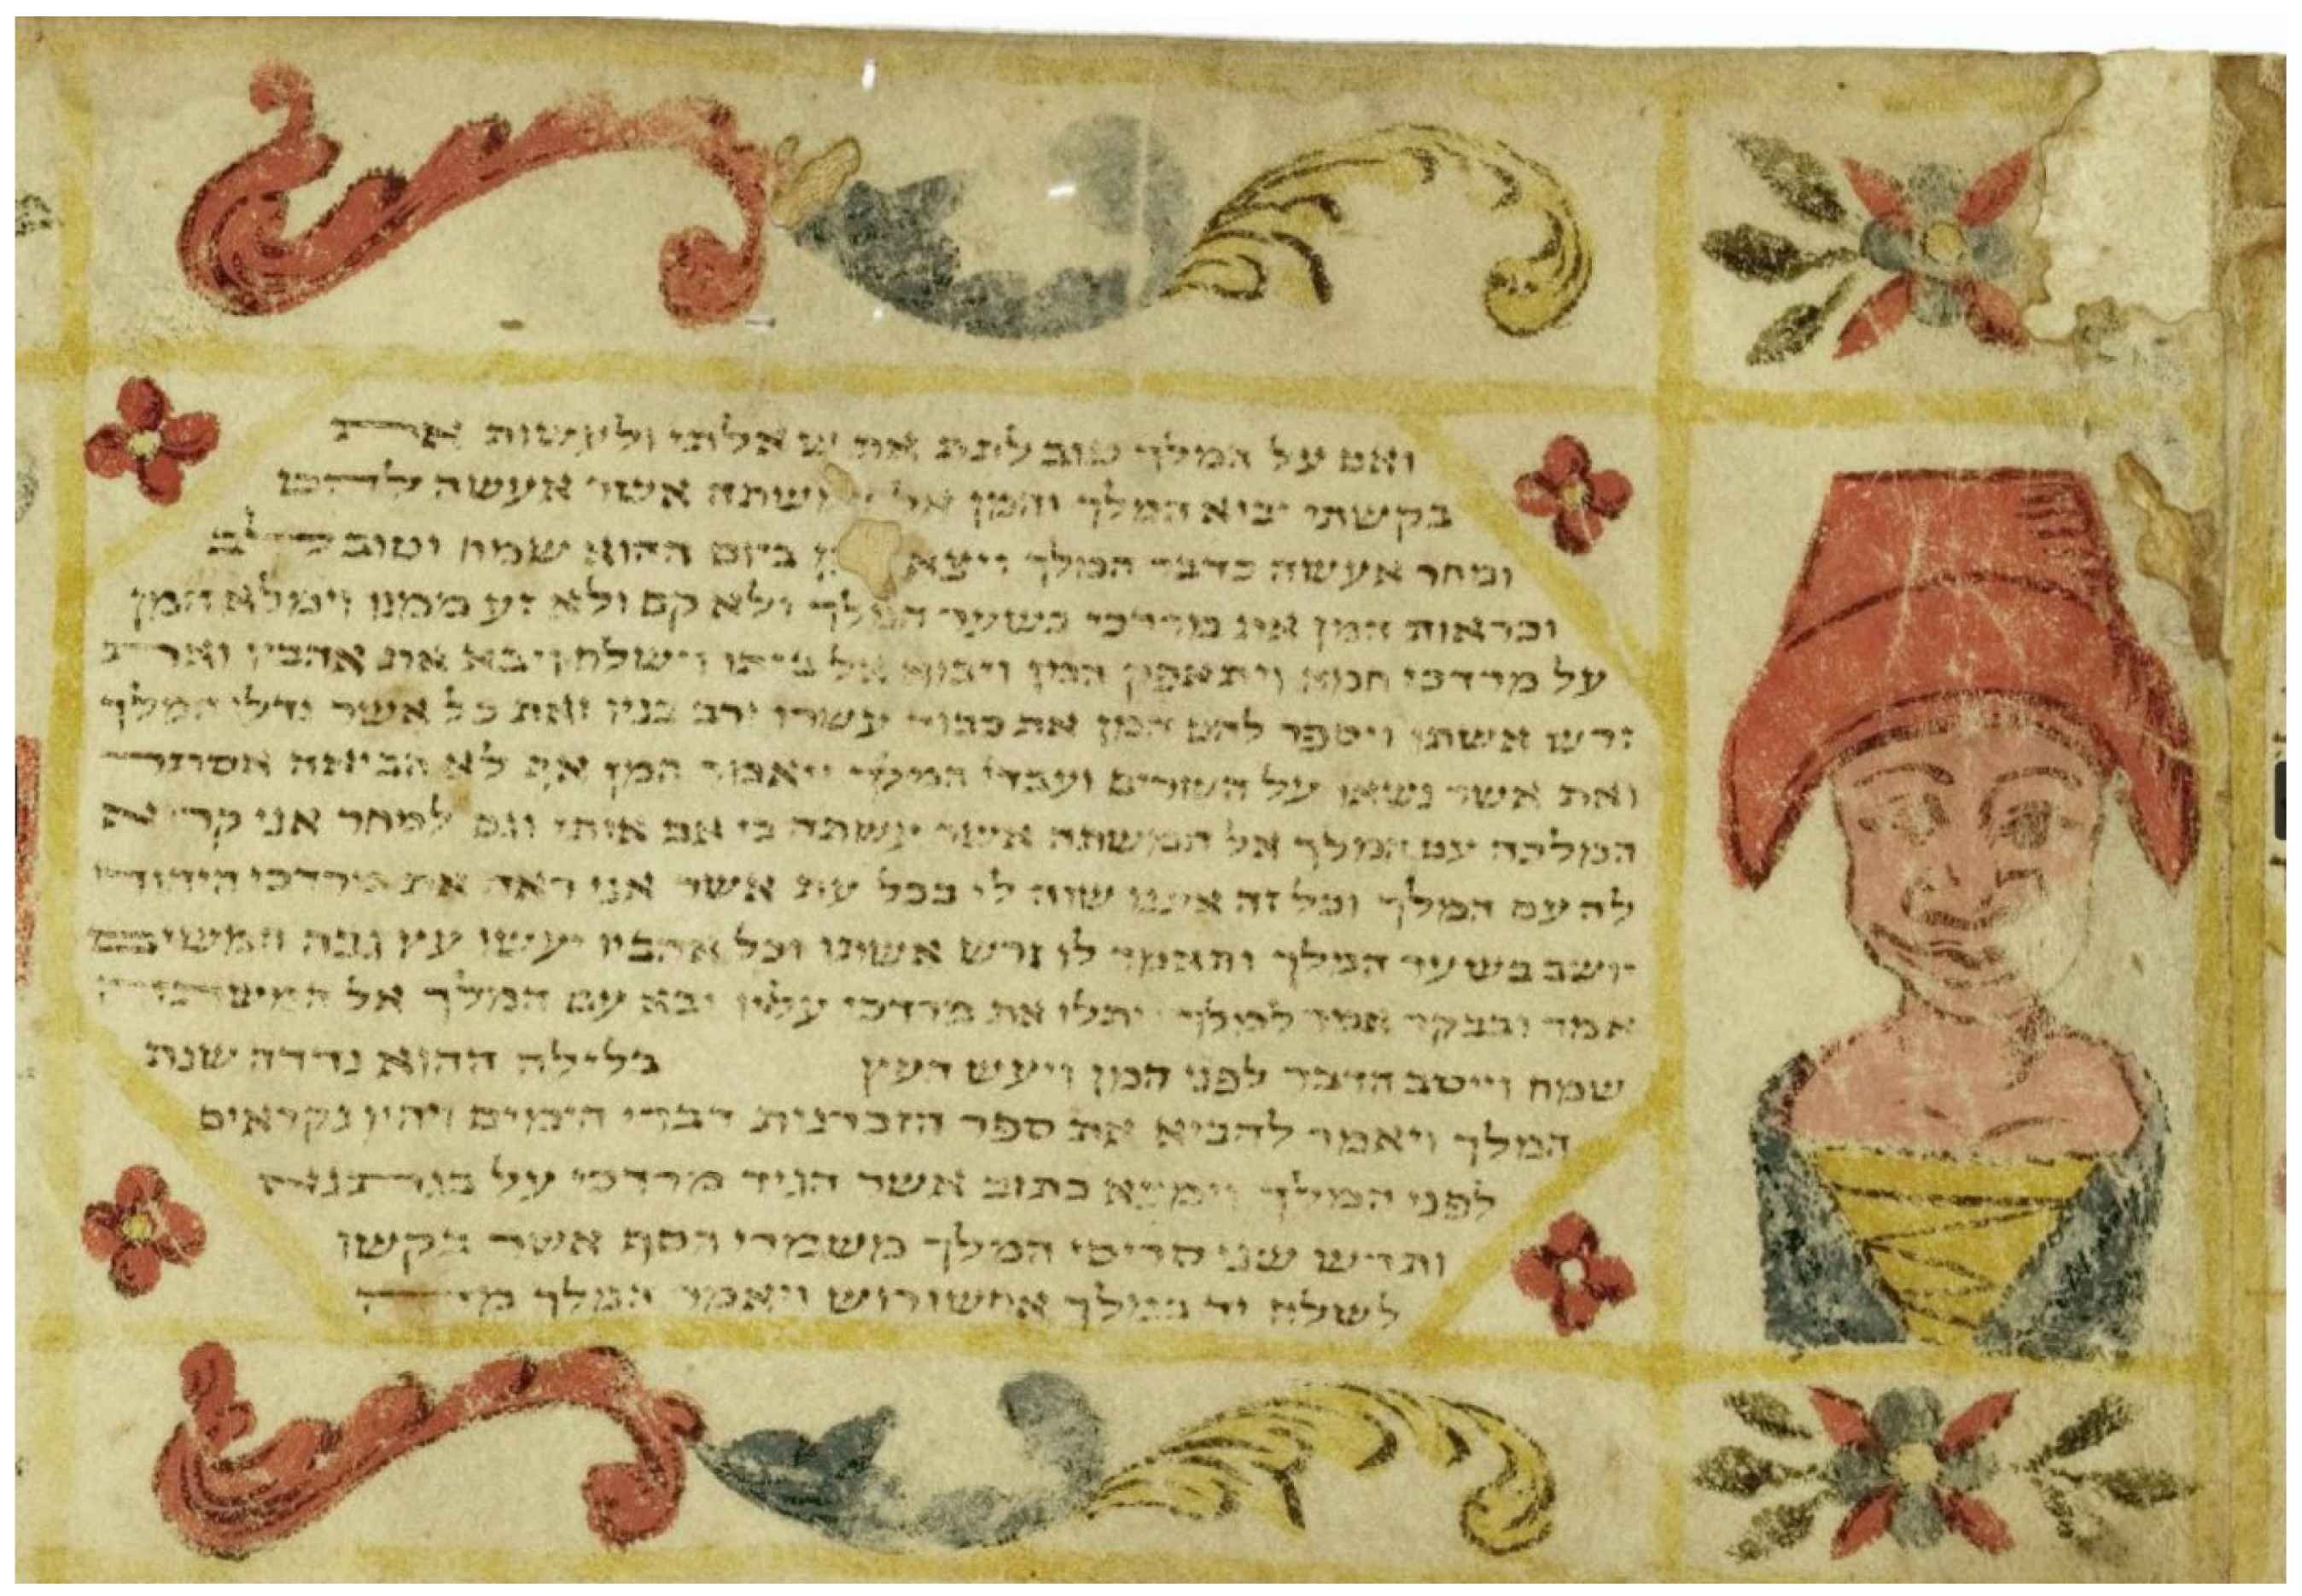 ואם על המלך טוב לתת את שאלתי ולעשות את
בקשתי יבוא המלך והמן אל אשר אעשה להם
ומחר אעשה כדבר המלך ויצא ביום ההוא שמח וטוב לב
וכראות המן את מרדכי בשער המלך ולא קם ולא זע ממנו וימלא המן
על מרדכי חמה ויתאפק המן ויבוא אל ביתו וישלח ויבא את אהביו ואת
זרש אשתו ויספר להם המן את כבוד עשרו ורב בניו ואת כל אשר גדלו המלך
ואת אשר נשאו על השרים ועבדי המלך ויאמר המן אף לא הביאה אסתר
המלכה עם המלך אל המשתה אשר עשתה כי אם אותי וגם למחר אני קרוא
לה עם המלך וכל זה איננו שוה לי בכל עת אשר אני ראה את מרדכי היהודי
יושב בשער המלך ותאמר לו זרש אשתו וכל אהביו יעשו עץ גבה חמשים
אמה ובבקר אמר למלך ויתלו את מרדכי עליו ובא עם המלך אל המשתה
שמח וייטב הדבר לפני המן ויעש העץ בלילה ההוא נדדה שנת
המלך ויאמר להביא את ספר הזכרנות דברי הימים ויהיו נקראים
לפני המלך וימצא כתוב אשר הגיד מרדכי על בגתנא
ותרש שני סריסי המלך משמרי הסף אשר בקשו
לשלח יד במלך אחשורוש ויאמר המלך מה